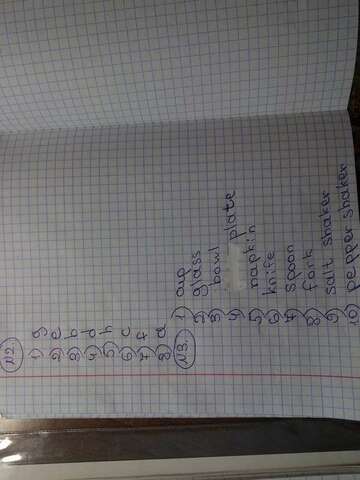 N2.
1) g
2) e
3) b
4) d
5) h
6) c
7) f
8) a
N3.
1) cup
2) glass
3) bowl
4) plate
5) napkin
6) knife
7) spoon
8) fork
9) salt shaker
10) pepper shaker